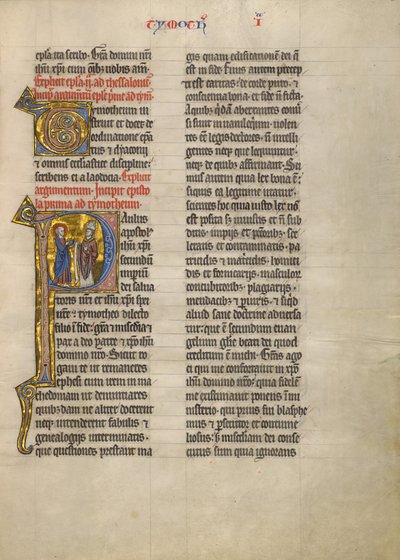 TYMOTH I
epla ita scribo. Gra domini nri
ihu xpi cum omib; uobis am.
Explicit epla .ij. ad thessalonic
Incip argumentum eple pme ad tym.
Tymotheum in
struit et docet de
ordinatione epa
tus et dyaconij
et omnis ecclesiastice discipline:
scribens ei a laodicia. Explicit
argumentum. Incipit episto
la prima ad tymotheum.
Paulus
apostol'
ihu xpi
secundu
imperiu
dei salua
toris nri et ihu xpi spei
nre: tymotheo dilecto
filio i fide: gra misericdia et
pax a deo patre et xpo ihu
domino nro. Sicut ro
gaui te ut remaneres
ephesi cum irem in ma
chedoniam ut denuntiares
quibusdam ne aliter docerent
neq; intenderent fabulis et
genealogijs interminatis.
que questiones prestant ma
gis quam edificationem dei q
est in fide. Finis autem precep
ti est caritas: de corde puro et
conscientia bona. et fide n ficta.
A quib; qdam aberrantes conu
si sunt in uaniloquium. uolen
tes ee legis doctores. n intelli
gentes neq; que loquuntur.
neq; de quib; affirmant. Sci
mus autem quia lex bona e:
si quis ea legitime utatur.
scientes hoc quia iusto lex no
est posita s; iniustis et n sub
ditis. impijs et peccatorib;. sce
leratis et contaminatis. pa
tricidis et matricidis. homici
dis et fornicarijs. masculor
concubitorib;. plagiarijs.
mendacib; et piuris. et siqd
aliud sane doctrine aduersa
tur: que e secundum euan
gelium glorie beati dei quod
creditum e michi. Gratias ago
ei qui me confortauit in xpo
ihu domino nro: quia fidele
me existimauit ponens i mi
nisterio. qui prius fui blasphe
mus et persecutor et contume
liosus: s; misericdiam dei conse
cutus sum quia ignorans